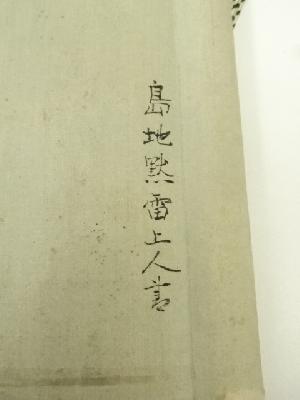 島地黙雷上人書